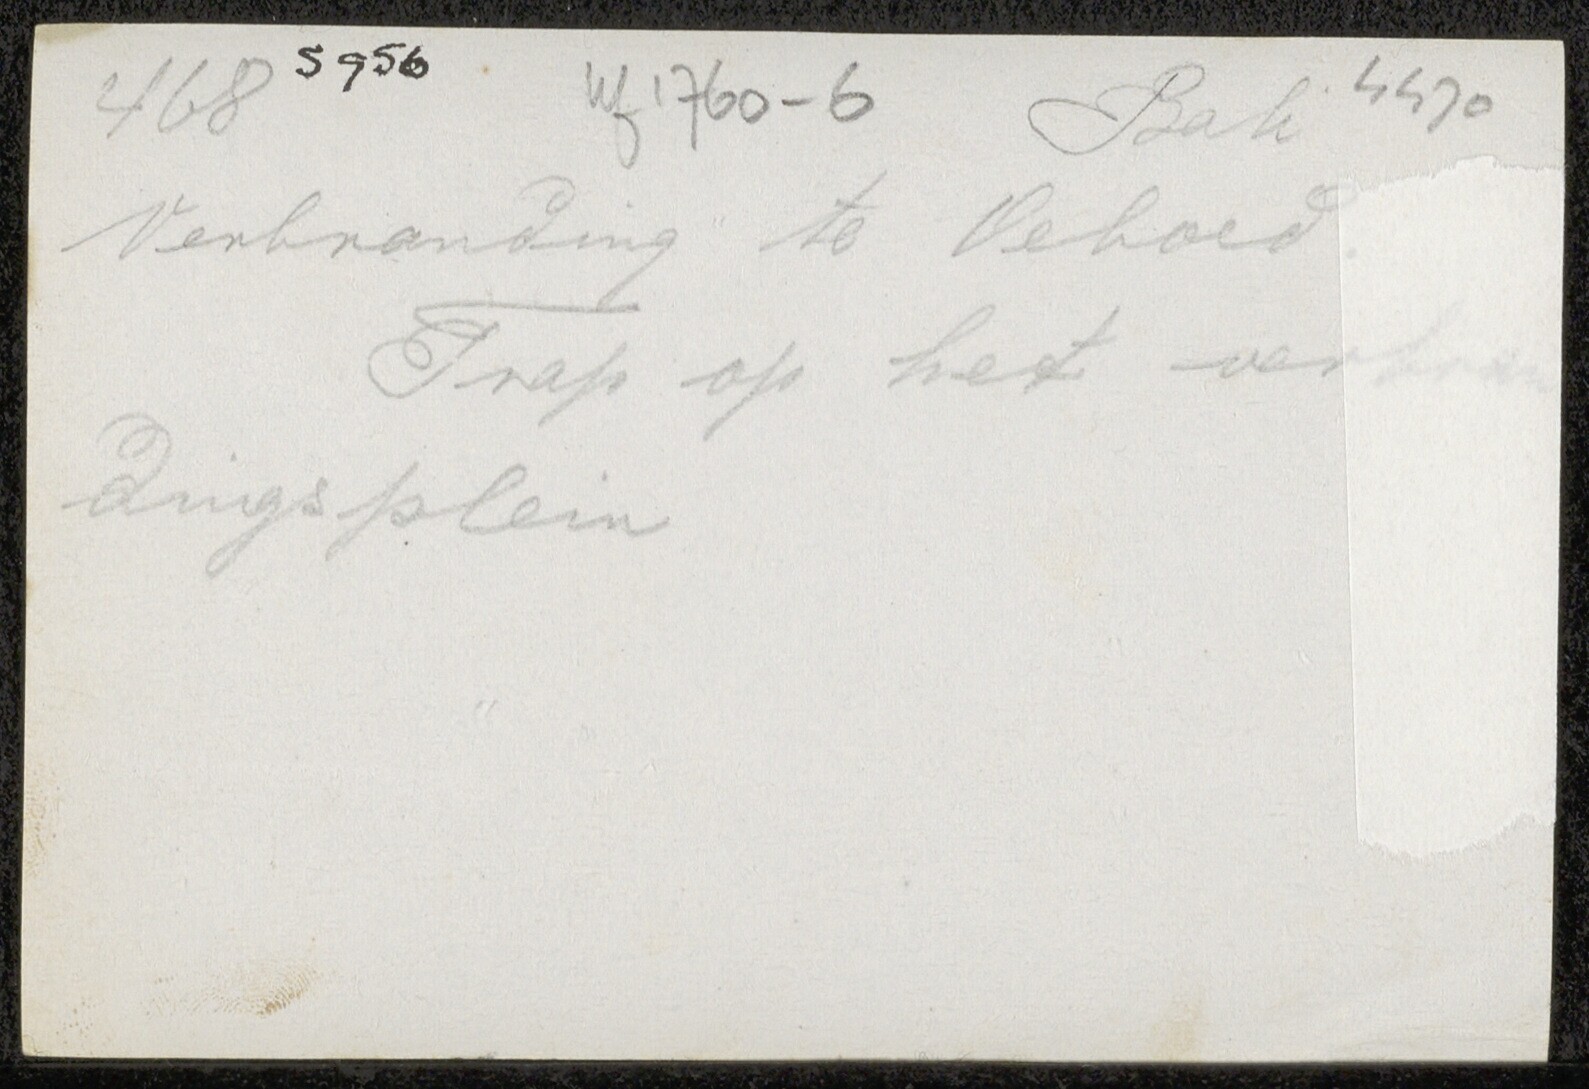 468 5956 Wf 1760-6 Bali 4470
Verbranding te Oeboed.
Trap op het verbran
dingsplein